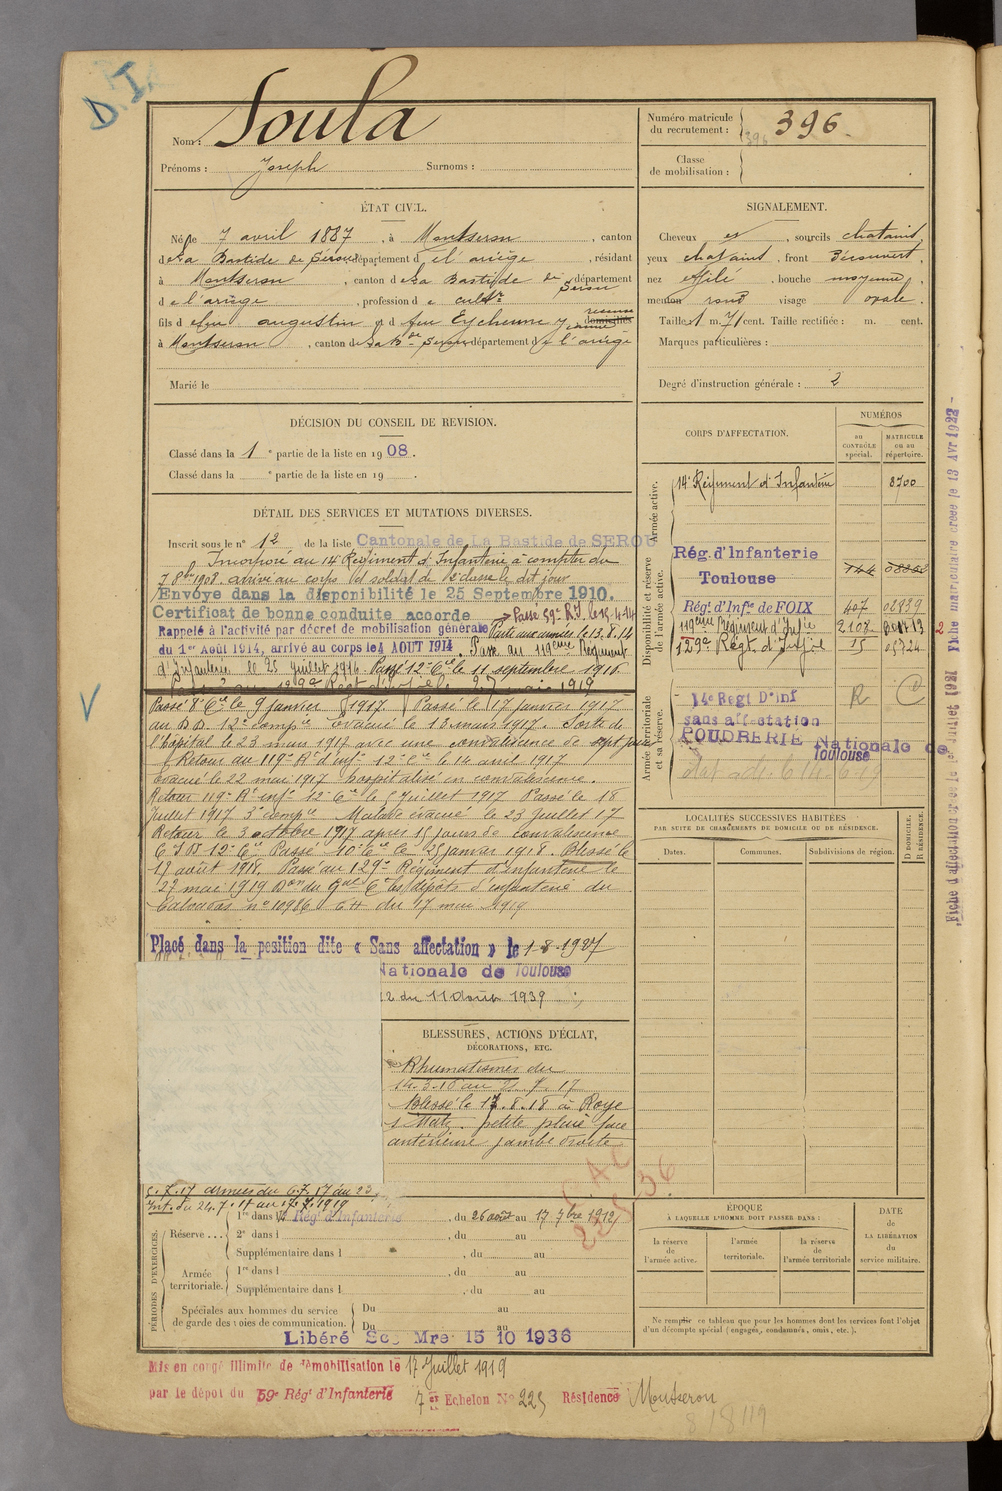 Nom : Soula
Prénoms : Joseph Surnoms :
Numéro matricule du recrutement : 396
396
Classe de mobilisation :
ÉTAT CIVIL.
Né le 7 avril 1887, à Montseron, canton
de La Bastide de Sérou, département de l'ariège, résidant
à Montseron, canton de La Bastide de Serou département
de l'ariège, profession de cultr
fils de feu augustin et de feu Eychenne Jeanne domiciliés
à Montseron, canton de La Bde Serou département de l'ariège
Marié le
SIGNALEMENT.
Cheveux et, sourcils chatains
yeux chatains, front Découvert,
nez effilé, bouche moyenne,
menton rond visage ovale.
Taille 1 m. 71 cent. Taille rectifiée : m. cent.
Marques particulières :
Degré d'instruction générale : 2
DÉCISION DU CONSEIL DE REVISION.
Classé dans la 1e partie de la liste en 1908.
Classé dans la e partie de la liste en 19 .
DÉTAIL DES SERVICES ET MUTATIONS DIVERSES.
Inscrit sous le n° 12 de la liste Cantonale de La Bastide de SEROU
Incorporé au 14e Régiment d'Infanterie à compter du
7 8bre 1908. arrivé au corps et soldat de 2e classe le dit jour
Envoyé dans la disponibilité le 25 Septembre 1910.
Certificat de bonne conduite accordé
Passé 59e R.I. le 15-4-14
Rappelé à l'activité par décret de mobilisation générale
du 1er Août 1914, arrivé au corps le 4 AOUT 1914.
Parti aux armées le 13.8.14
Passé au 119eme Régiment
d'Infanterie le 25 juillet 1916. Passé 12e Cie le 11 septembre 1916
Passé au 129e Régt d'infie le 27 mai 1919
Passé 8e Cie le 9 janvier 1917. Passé le 17 janvier 1917
au DD 12e compie Evacué le 13 mars 1917. Sorti de
l'hôpital le 23 mars 1917 avec une convalescence de sept jours
Retour au 119e Rt d'inf. 12e Cie le 14 avril 1917
Evacué le 22 mai 1917 hospitalisé en convalescence.
Retour 119e Rt infie 12e Cie le 5 Juillet 1917 Passé le 18
Juillet 1917 3e compie Malade évacué le 23 Juillet 17
Retour le 3 octobre 1917 après 15 jours de convalescence
C I D 12e Cie Passé 10e Cie le 25 janvier 1918. Blessé le
17 août 1918. Passé au 129e Régiment d'Infanterie le
27 mai 1919 Don du Gal Ct les dépôts d'infanterie du
Calvados n° 10986 C H du 17 mai 1919
Placé dans la position dite « Sans affectation » le 1-8-1927
Nationale de Toulouse
12 du 11 Août 1939
CORPS D'AFFECTATION.
NUMÉROS
au CONTRÔLE spécial.
MATRICULE ou au répertoire.
Armée active.
14e Régiment d'Infanterie 8700
Disponibilité et réserve de l'armée active.
Rég. d'Infanterie
Toulouse
Régt d'Infie de FOIX 407 02839
119eme Régiment d'Infie 2107
129e Régt d'Infie 15 05724
Armée territoriale et sa réserve.
14e Regt D'inf
sans affectation R C
POUDRERIE Nationale de
Toulouse
LOCALITÉS SUCCESSIVES HABITÉES
PAR SUITE DE CHANGEMENTS DE DOMICILE OU DE RÉSIDENCE.
Dates. Communes. Subdivisions de région.
D. DOMICILE. R. RÉSIDENCE.
BLESSURES, ACTIONS D'ÉCLAT,
DÉCORATIONS, ETC.
Rhumatismes du
Blessé le 17.8.18 à Roye
s Matz. petite plaie face
antérieure jambe droite
5.7.17 armées du 6.7.17 au 23
Int. du 24.7.17 au 17.7.1919
PÉRIODES D'EXERCICES.
Réserve ... 1re dans l 14e Régt d'Infanterie, du 26 août au 17 7bre 1912
2e dans l , du au
Supplémentaire dans l , du au
Armée territoriale. 1re dans l , du au
Supplémentaire dans l , du au
Spéciales aux hommes du service de garde des voies de communication. Du au
Du au
Libéré Sce Mre 15 10 1936
ÉPOQUE
À LAQUELLE L'HOMME DOIT PASSER DANS :
la réserve de l'armée active.
l'armée territoriale.
la réserve de l'armée territoriale
DATE DE LA LIBÉRATION du service militaire.
Ne remplir ce tableau que pour les hommes dont les services font l'objet
d'un décompte spécial (engagés, condamnés, omis, etc.).
Mis en congé illimité de démobilisation le 17 Juillet 1919
par le dépôt du 59e Régt d'Infanterie 7e Echelon N° 225 Résidence Montseron
Fiche matriculaire créée le 13 Avr 1922